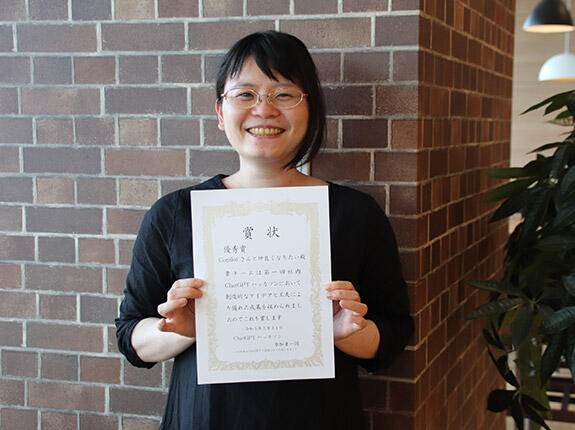 賞状
優秀賞
Copilotさんと仲良くなりたい殿
貴チームは第一回社内
ChatGPTハッカソンにおいて
創造的なアイデアと工夫によ
り優れた成果を収められまし
たのでこれを賞します
ChatGPTハッカソン
参加者一同